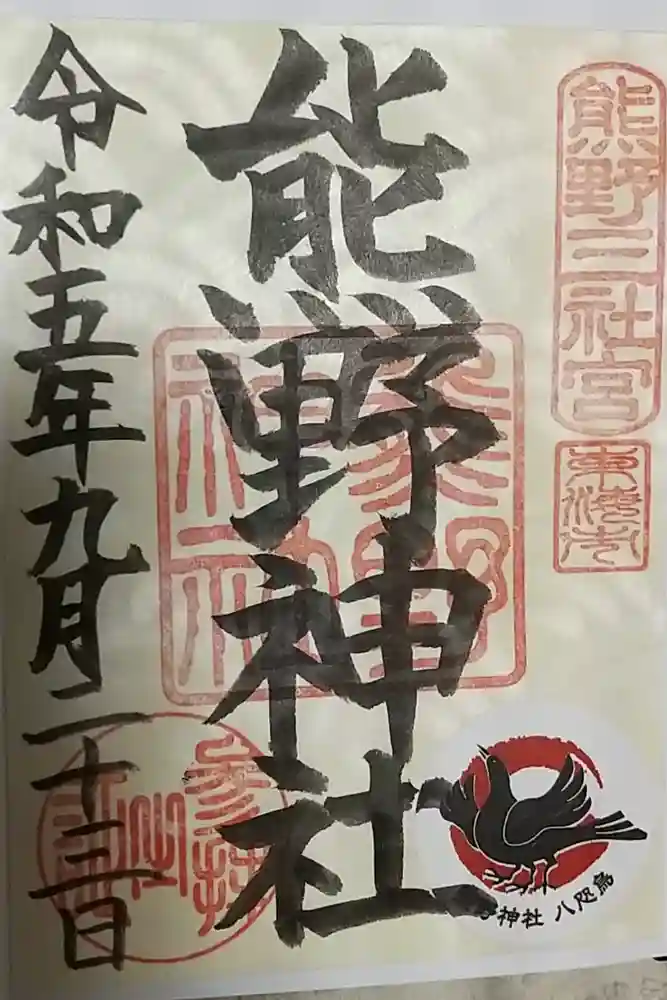 熊野三社宮
東海市
熊野神社
熊野神社
神社 八咫烏
令和五年九月二十三日
参拝之証